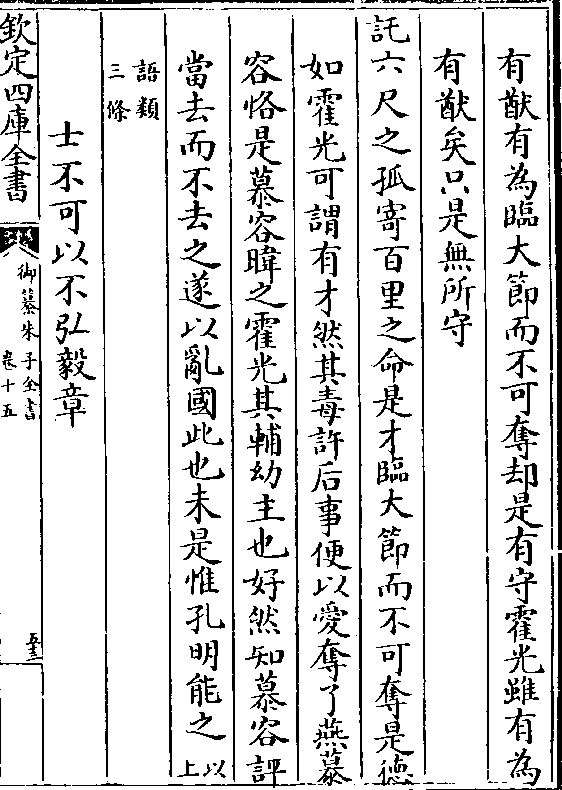 有猷有為臨大節而不可奪却是有守霍光雖有為
有猷矣只是無所守
託六尺之孤寄百里之命是才臨大節而不可奪是德
如霍光可謂有才然其毒許后事便以愛奪了燕慕
容恪是慕容暐之霍光其輔幼主也好然知慕容評
當去而不去之遂以亂國此也未是惟孔明能之以上
語類
三條
士不可以不弘毅章
欽定四庫全書
御纂朱子全書
卷十五